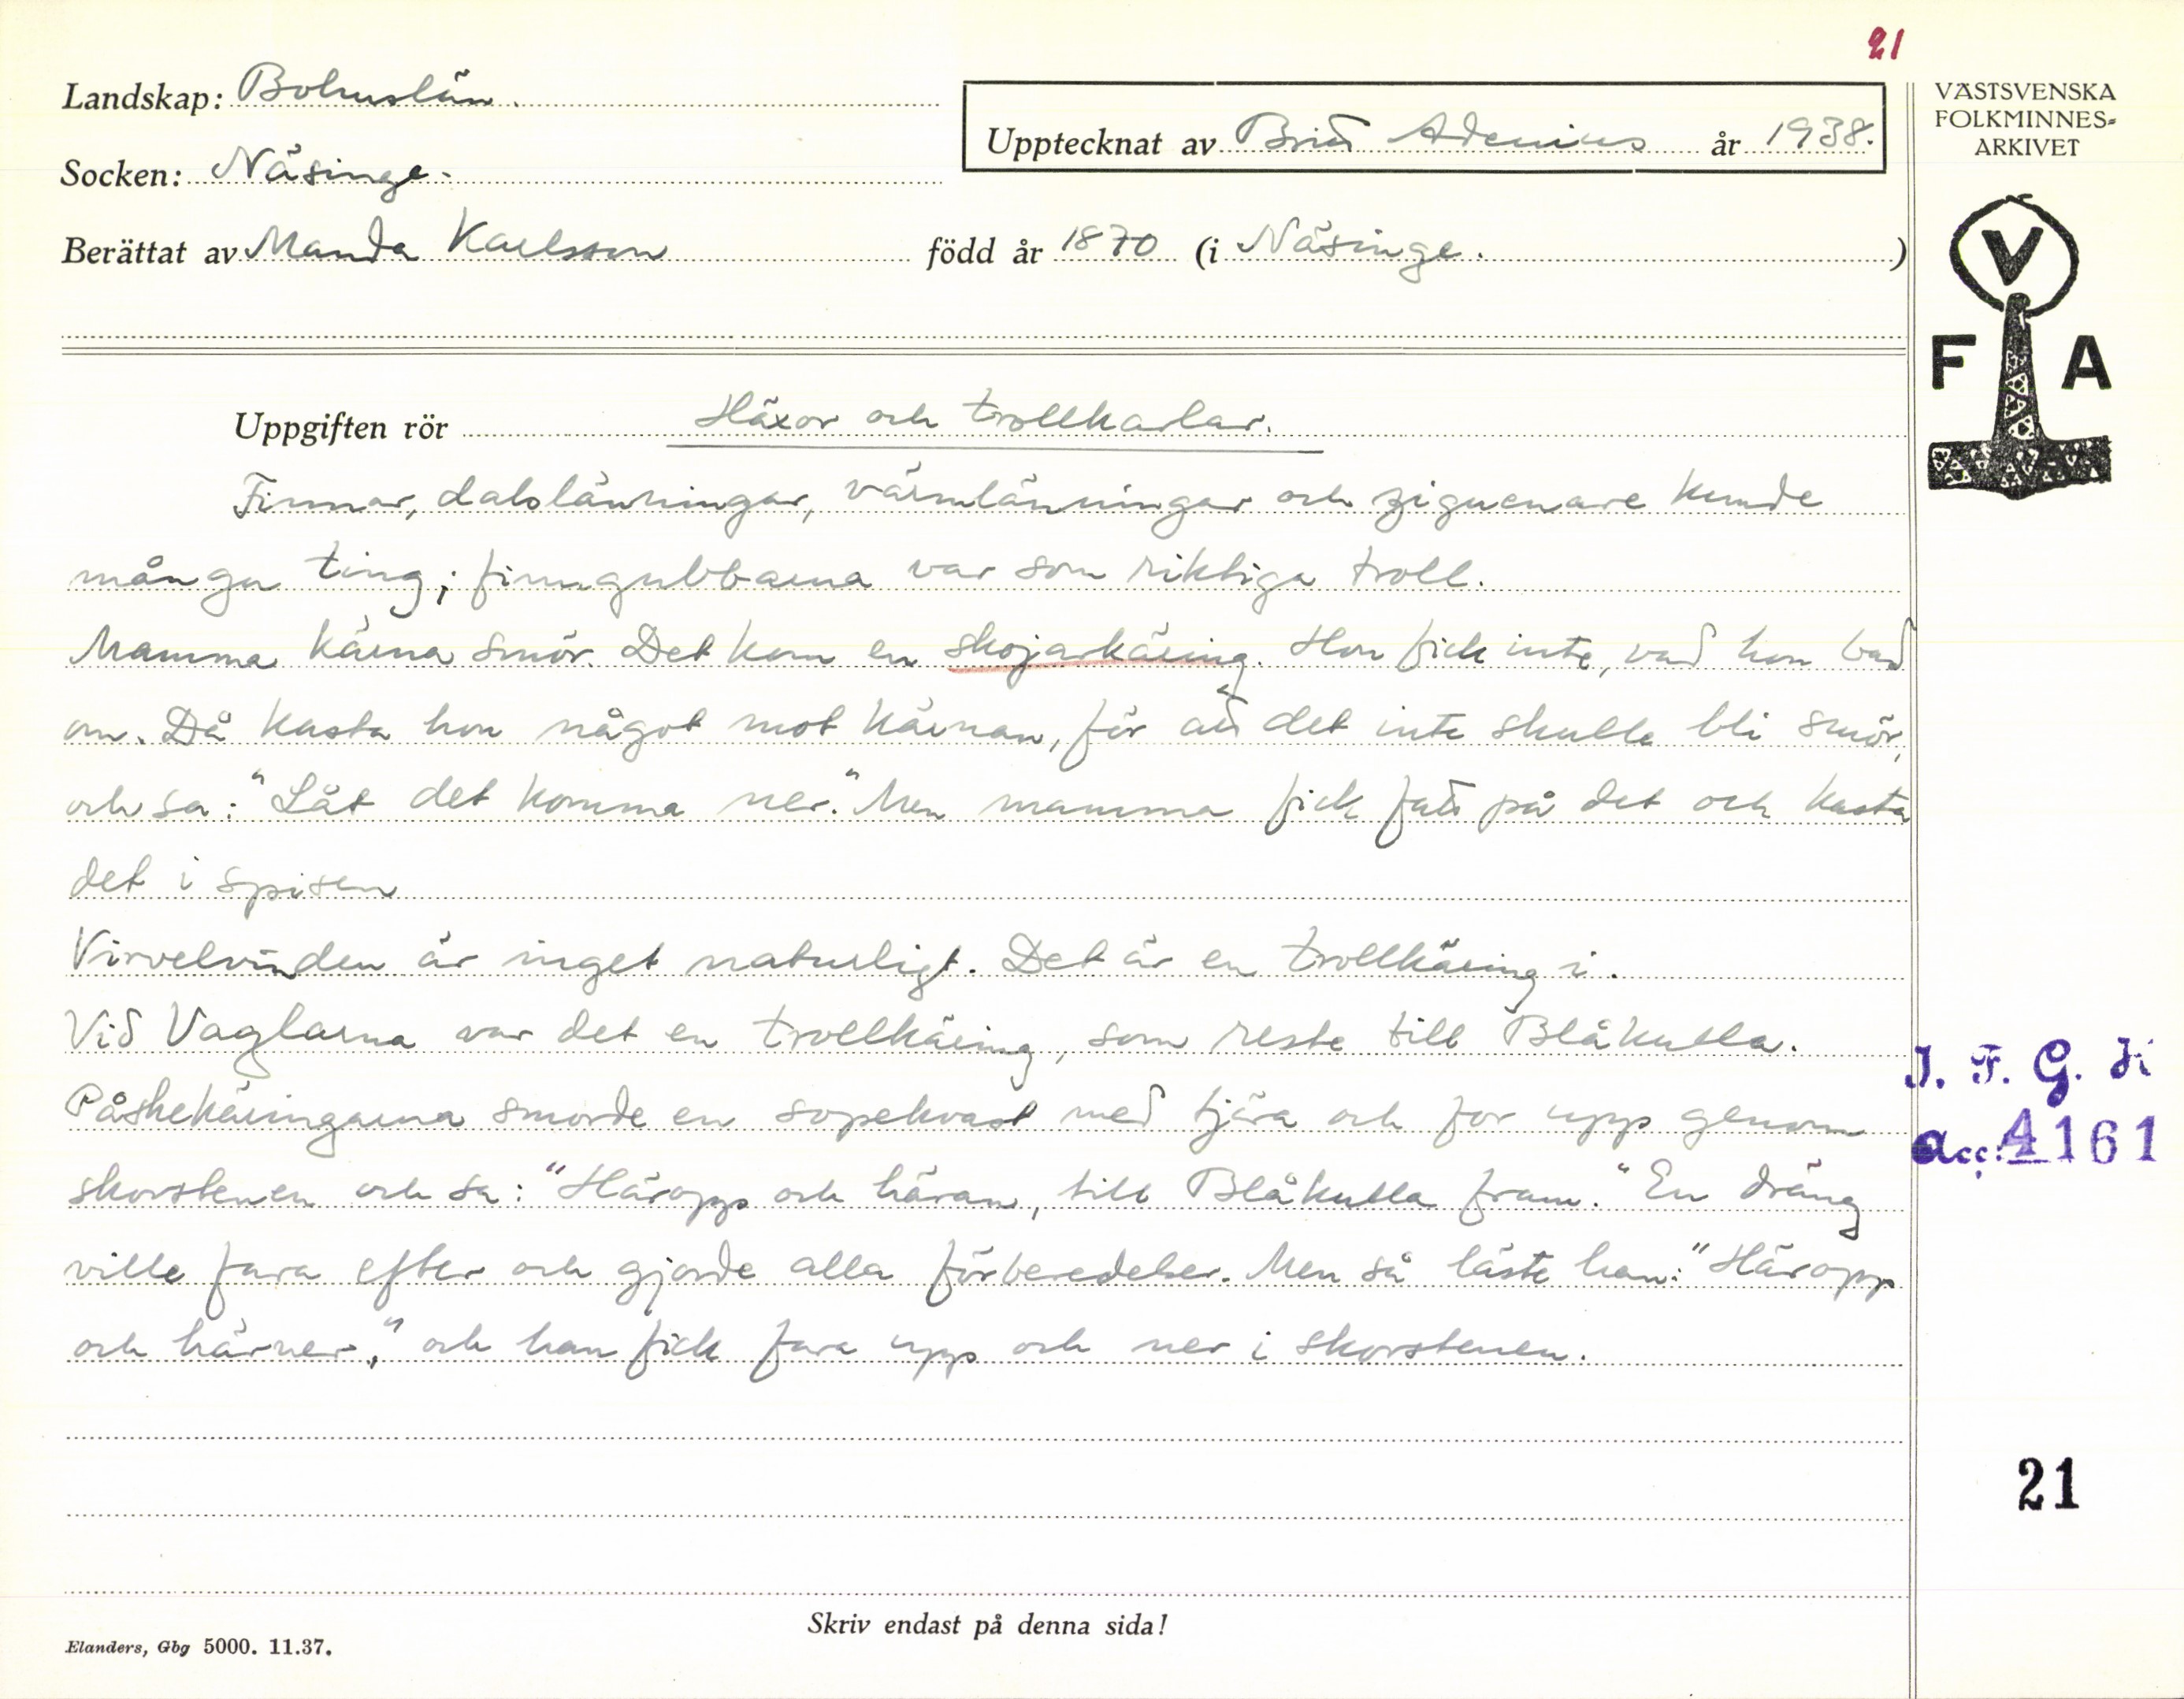 21
Landskap: Bohuslän.
Upptecknat av Britt Adenius år 1938.
Socken: Näsinge.
Berättat av Manda Karlsson född år 1870 (i Näsinge.)
VÄSTSVENSKA
FOLKMINNES-
ARKIVET
V
F A
Uppgiften rör Häxor och trollkarlar.
Finnar, dalslänningar, värmlänningar och ziguenare kunde
många ting; finngubbarna var som riktiga troll.
Mamma kärna smör. Det kom en skojarkäring. Hon fick inte, vad hon bad
om. Då kasta hon något mot kärnan, för att det inte skulle bli smör,
och sa: "Låt det komma ner." Men mamma fick fatt på det och kasta
det i spisen
Virvelvinden är inget naturligt. Det är en trollkäring i.
Vid Vaglarna var det en trollkäring, som reste till Blåkulla.
Påskekäringarna smorde en sopekvast med tjära och for upp genom
skorstenen och sa: "Häropp och häran, till Blåkulla fram." En dräng
ville fara efter och gjorde alla förberedelser. Men så läste han: "Häropp
och härner," och han fick fara upp och ner i skorstenen.
I. F. G. H
Acc. 4161
21
Skriv endast på denna sida!
Elanders, Gbg 5000. 11.37.